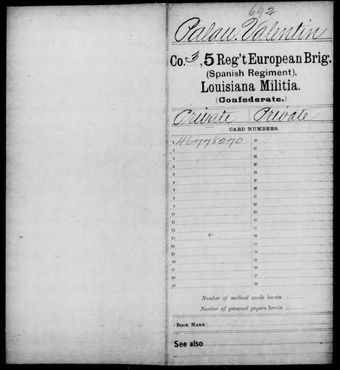 692
Palau, Valentin
Co. 3, 5 Reg't European Brig.
(Spanish Regiment),
Louisiana Militia.
(Confederate.)
Private Private
CARD NUMBERS.
1 46778270 20
2 21
3 22
4 23
5 24
6 25
7 26
8 27
9 28
10 29
11 30
12 31
13 32
14 33
15 34
16 35
17 36
18 37
19 38
Number of medical cards herein
Number of personal papers herein
BOOK MARK:
See also